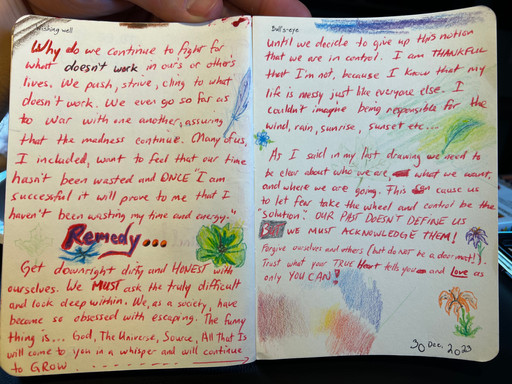 Wishing well
Why do we continue to fight for
what doesn't work in ours or others
lives. We push, strive, cling to what
doesn't work. We even go so far as
to war with one another, assuring
that the madness continue. Many of us,
I included, want to feel that our time
hasn't been wasted and ONCE "I am
successful it will prove to me that I
haven't been wasting my time and energy."
Remedy...
Get downright dirty and HONEST with
ourselves. We MUST ask the truly difficult
and look deep within. We, as a society, have
become so obsessed with escaping. The funny
thing is... God, The Universe, Source, All That Is
will come to you in a whisper and will continue
to GROW.........
Bull's-eye
until we decide to give up this notion
that we are in control. I am THANKFUL
that I'm not, because I know that my
life is messy just like everyone else. I
couldn't imagine being responsible for the
wind, rain, sunrise, sunset etc...
As I said in my last drawing we need to
be clear about who we are, what we want,
and where we are going. This can cause us
to let fear take the wheel and control be the
"solution". OUR PAST DOESN'T DEFINE US
BUT WE MUST ACKNOWLEDGE THEM!
Forgive ourselves and others (but do not be a doormat!)
Trust what your TRUE Heart tells you and Love as
only YOU CAN!
30 Dec. 2023